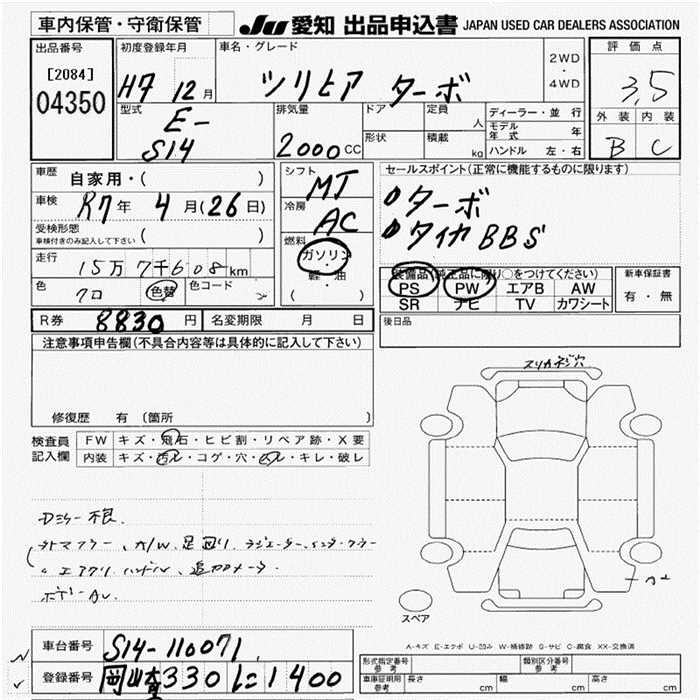 車内保管・守衛保管
JU 愛知 出品申込書 JAPAN USED CAR DEALERS ASSOCIATION
出品番号
[2084]
04350
初度登録年月
H7 12月
車名・グレード
シルビア ターボ
2WD
・
4WD
評価点
3,5
外装 内装
B C
型式
E-
S14
排気量
2000CC
ドア
定員
人
形状
積載
kg
ディーラー・並行
モデル年式 年
ハンドル 左・右
車歴
自家用・( )
車検
R7年 4月(26日)
受検形態
車検付きのみ記入して下さい ( )
走行
15万7千608km
色
クロ
色替
色コード
シフト
MT
冷房
AC
燃料
ガソリン
・
軽・油
( )
セールスポイント(正常に機能するものに限ります)
ターボ
タイヤBBS
装備品(純正品に限り○をつけてください)
PS PW エアB AW
SR ナビ TV カワシート
新車保証書
有・無
R券 8830円
名変期限 月 日
後日品
注意事項申告欄(不具合内容等は具体的に記入して下さい)
修復歴 有 〔箇所 〕
検査員
記入欄
FW キズ・飛石・ヒビ割・リペア跡・X要
内装 キズ・汚ル・コゲ・穴・ビル・キレ・破レ
スリカネジ穴
不良
外マフラー、A/W、足回り、ラジエーター、インタークーラー
エアクリ、ハンドル、追加メーター
スペア
A-キズ E-エクボ U-凹み W-補修跡 S-サビ C-腐食 XX-交換済
車台番号
S14-110071
登録番号
岡山330 に1400
形式指定番号
参考
類別区分番号
参考
車庫証明用
参考
長さ cm
幅 cm
高さ cm